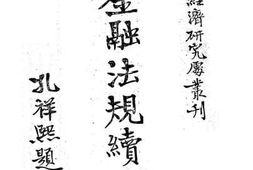 經濟研究處叢刊
金融法規續
孔祥熙題